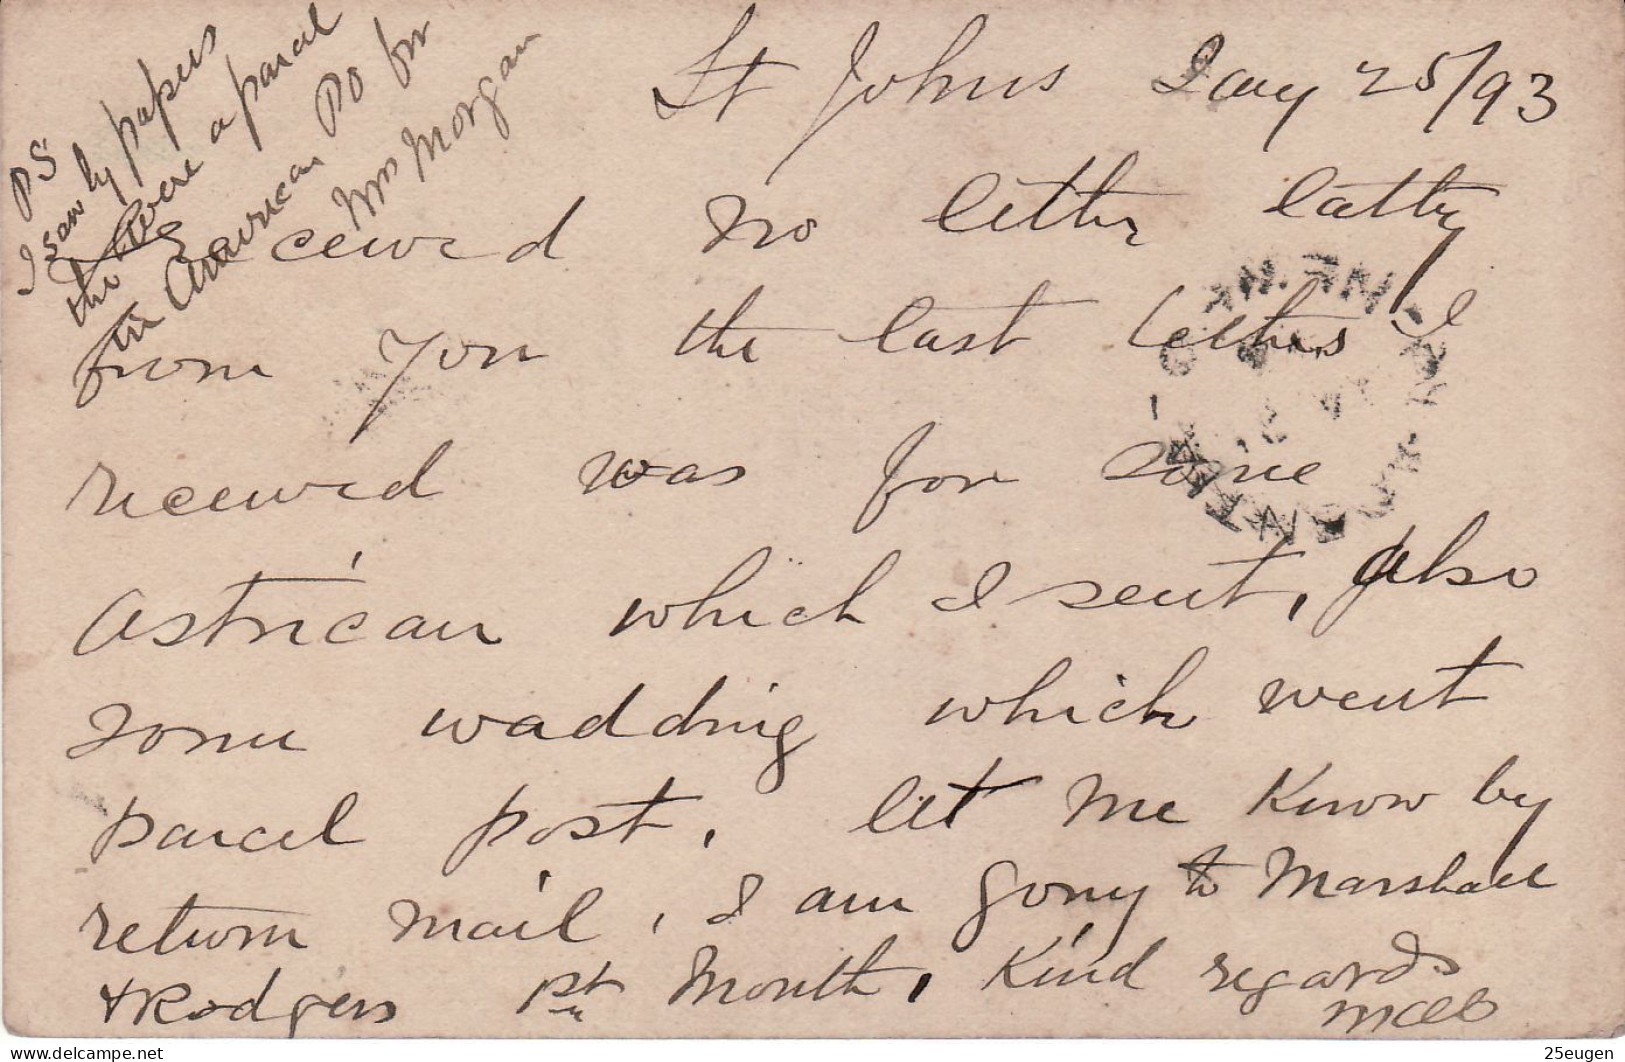 St Johns Jany 25/93
Received no letter lattly
from you the last letters I
received was for some
Astrican which I sent, also
some wadding which went
parcel post, let me know by
return mail, I am gony to Marshall
+ Rodgers 1st Month, Kind regards
PS
I saw by papers
the were a parcel
in American PO for
Mrs Morgan
© www.delcampe.net
25eugen